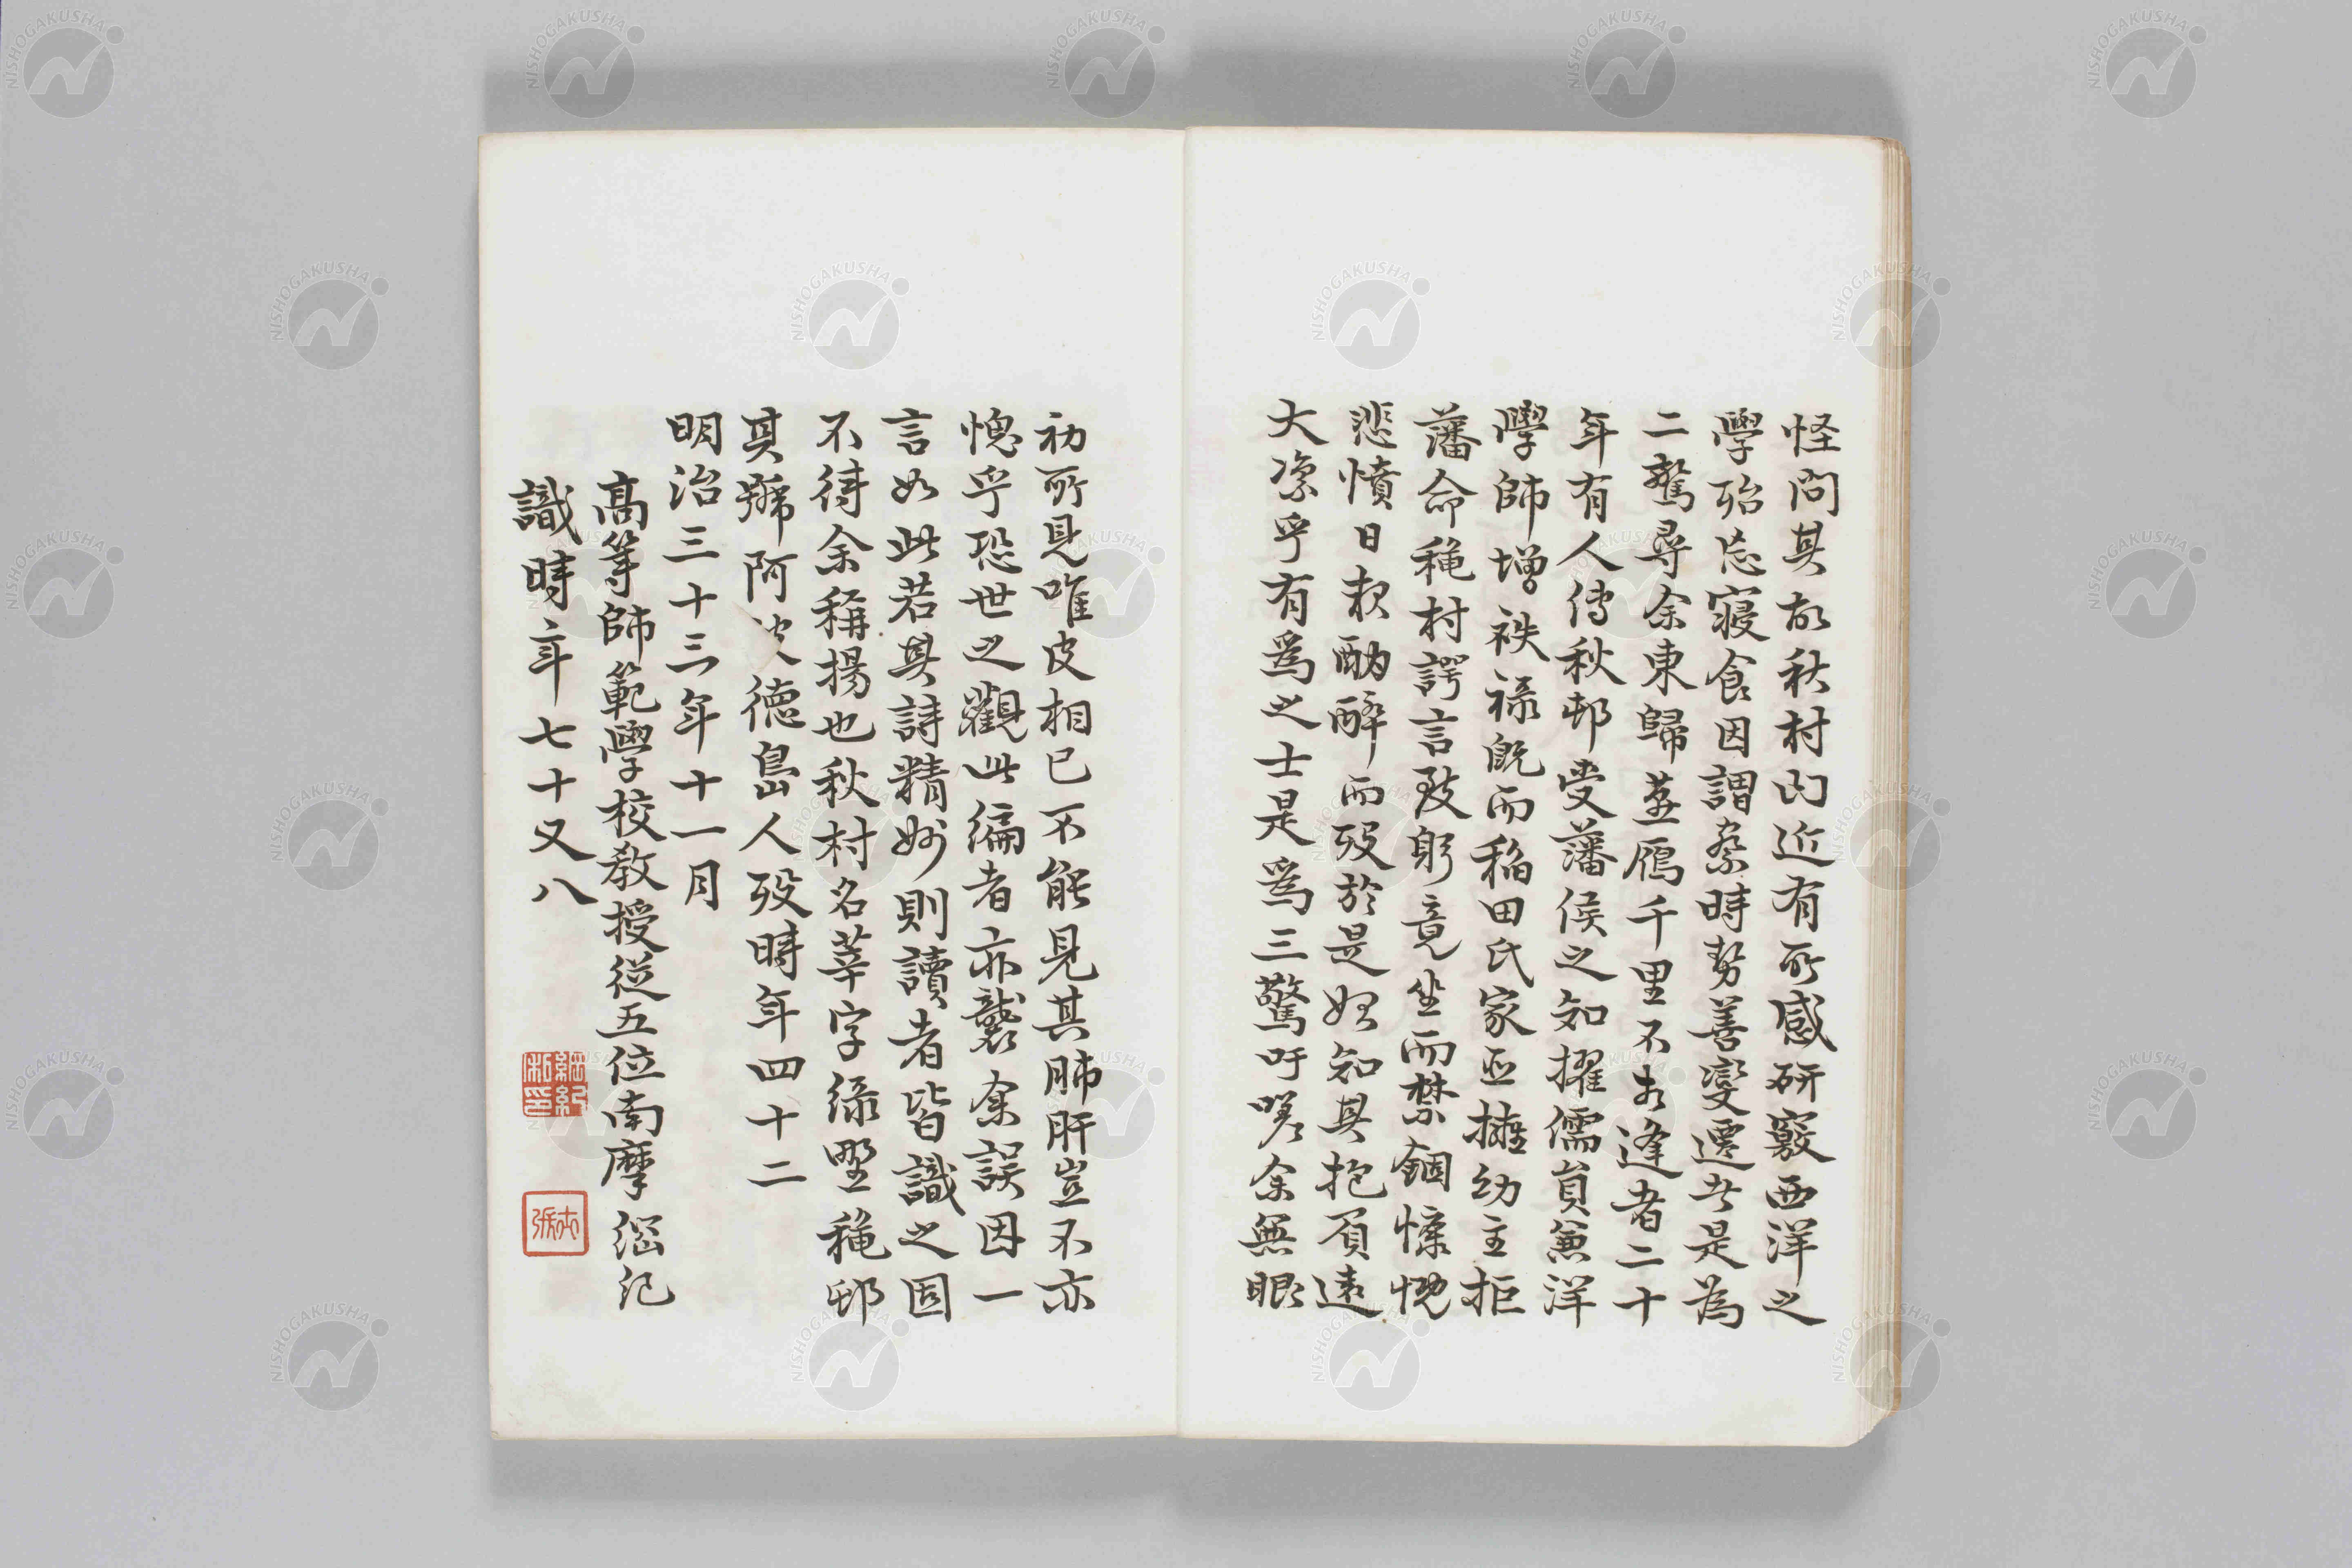 怪問其故秋村曰近有所感研竅西洋之
學殆忘寢食因謂察時勢善變遷者是為
二驚尋余東歸燕鴈千里不相逢者二十
年有人傳秋邨受藩侯之知擢儒員兼洋
學師增秩祿既而稲田氏家臣擁幼主拒
藩命穐村諤言致躬竟坐而禁錮慷慨
悲憤日耽酗醉而歿於是始知其抱負遠
大凛乎有爲之士是爲三驚吁嗟余無眼
初所見唯皮相已不能見其肺肝豈不亦
愧乎恐世之觀此編者亦襲余誤因一
言如此若其詩精妙則讀者皆識之固
不待余稱揚也秋村名莘字綠野穐邨
其號阿波德島人歿時年四十二
明治三十三年十一月
高等師範學校教授從五位南摩綱紀
識時年七十又八
NISHOGAKUSHA